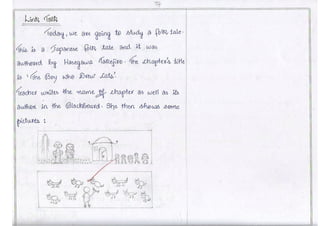 Link Talk
Today, we are going to study a folk tale.
This is a Japanese folk tale and it was
authored by Hasegawa Takejiro. The chapter's title
is 'The Boy who Drew Cats'.
Teacher writes the name of chapter as well as its
author in the Blackboard. She then shows some
pictures :